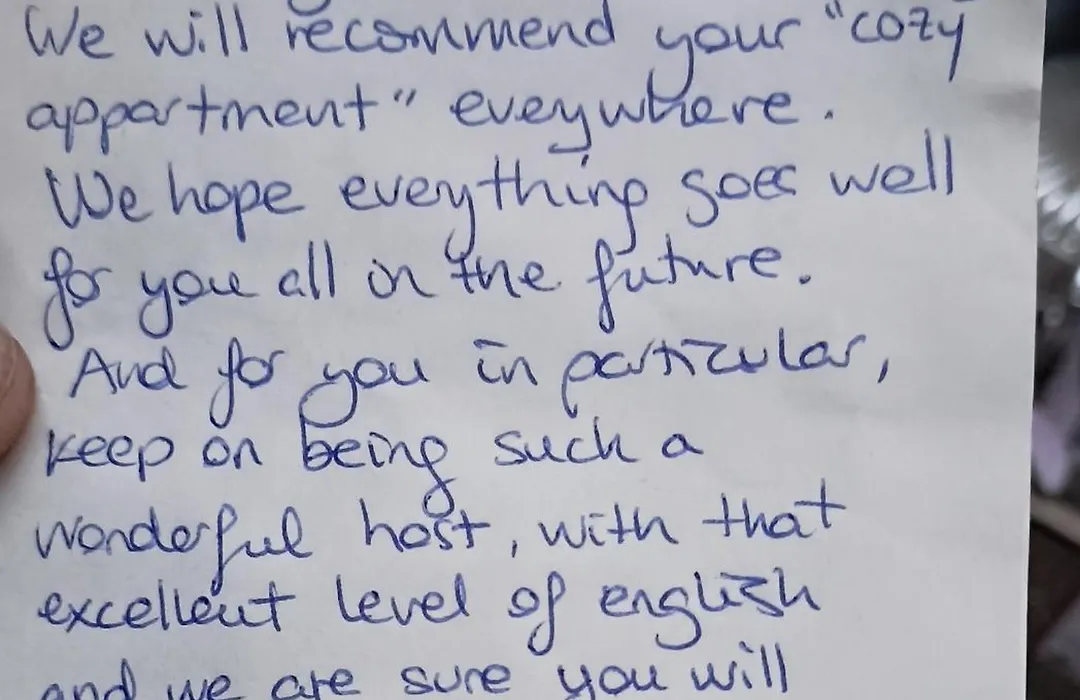 We will recommend your "cozy
appartment" eveywhere.
We hope eveything goes well
for you all in the future.
And for you in particular,
keep on being such a
wonderful host, with that
excellent level of english
and we are sure you will